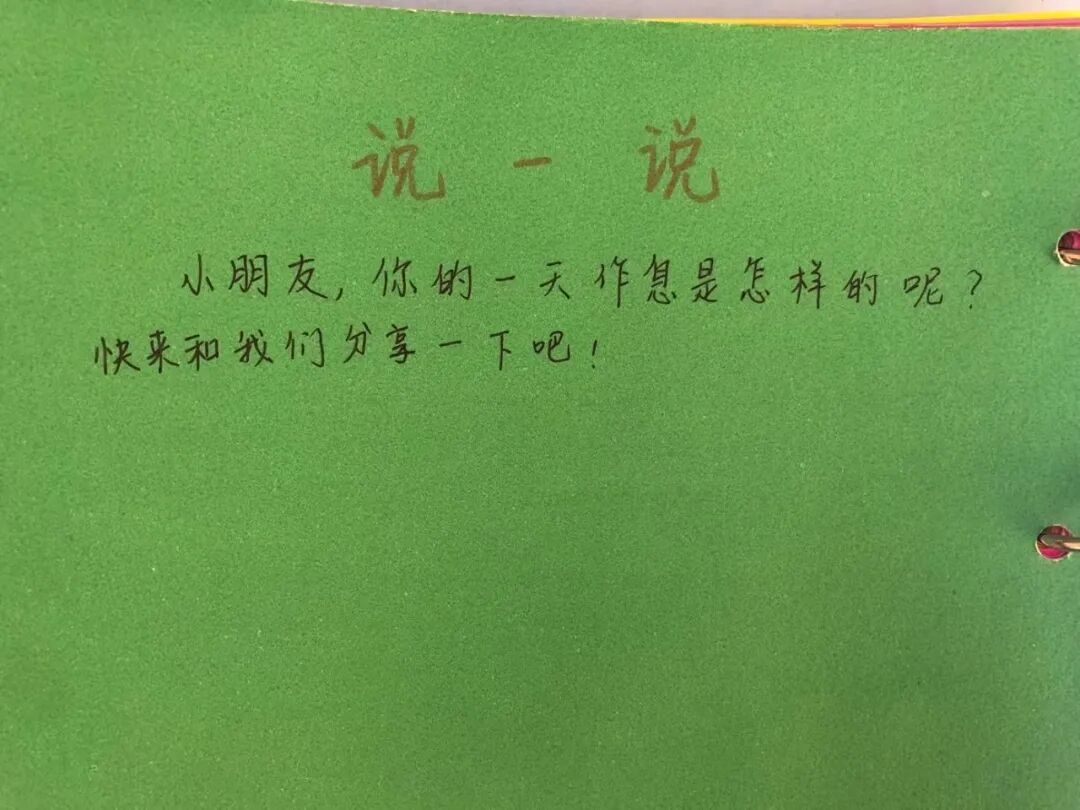 说一说
小朋友，你的一天作息是怎样的呢？
快来和我们分享一下吧！